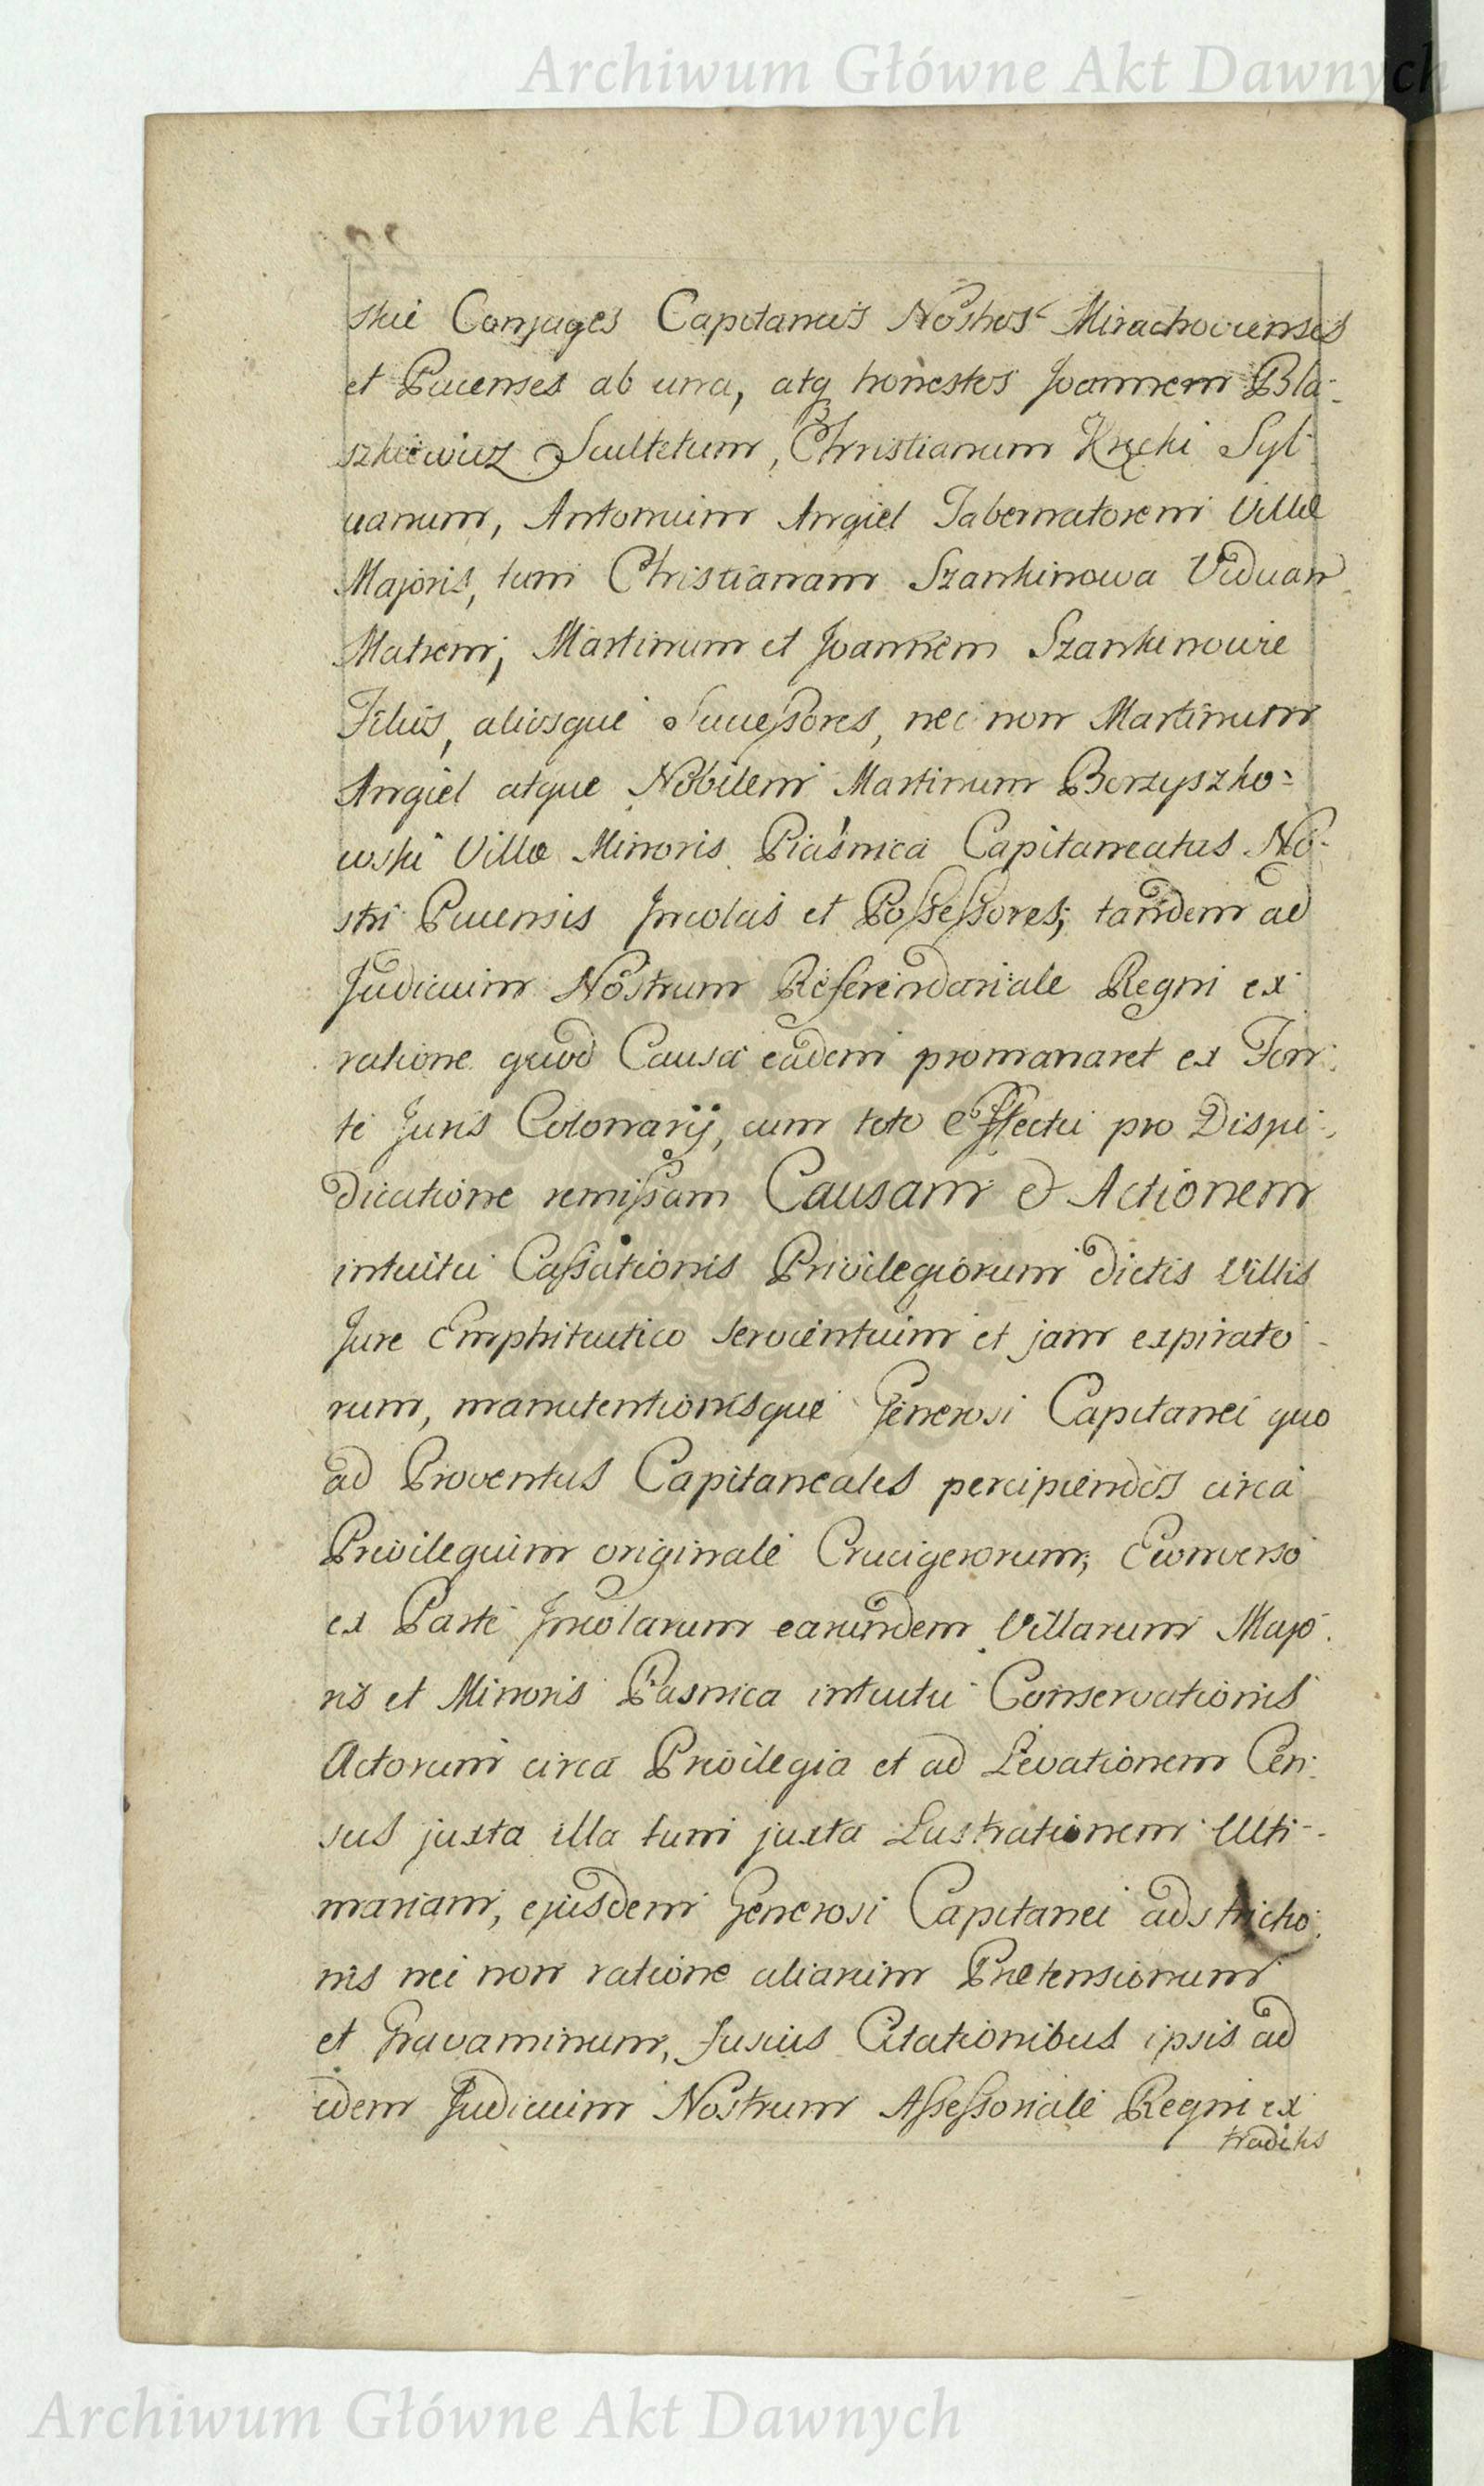 Archiwum Główne Akt Dawnych
skie Conjuges Capitaneos Nostros Mirachovienses
et Pucenses ab una, atq honestos Joannem Bla-
szkiewicz Scultetum, Christianum Kręcki Syl-
uanum, Antonium Angiel Tabernatorem Villæ
Majoris, tum Christianam Szankinowa Viduam
Matrem, Martinum et Joannem Szankinowie
Filios, aliosque Successores, nec non Martinum
Angiel atque Nobilem Martinum Borzyszko-
wski Villæ Minoris Piaśnica Capitaneatus No-
stri Pucensis Incolas et Possessores; tandem ad
Judicium Nostrum Referendariale Regni ex
ratione quod Causa eadem promanaret ex Fon-
te Juris Colonarij, cum toto Effectu pro Dispu-
dicatione remissam Causam & Actionem
intuitu Cassationis Privilegiorum dictis Villis
Jure Emphiteutico servientium et jam expirato-
rum, manutentionisque Generosi Capitanei quo
ad Proventus Capitaneales percipiendos circa
Privilegium originale Crucigerorum; Econverso
ex Parte Incolarum earundem Villarum Majo-
ris et Minoris Piasnica intuitu Conservationis
Actorum circa Privilegia et ad Levationem Cen-
sus juxta illa tum juxta Lustrationem Ulti-
mariam, ejusdem Generosi Capitanei adstrictio-
nis nec non ratione aliarum Prætensionum
et Gravaminum, fusius Citationibus ipsis ad
idem Judicium Nostrum Assessoriale Regni ex
traditis
Archiwum Główne Akt Dawnych